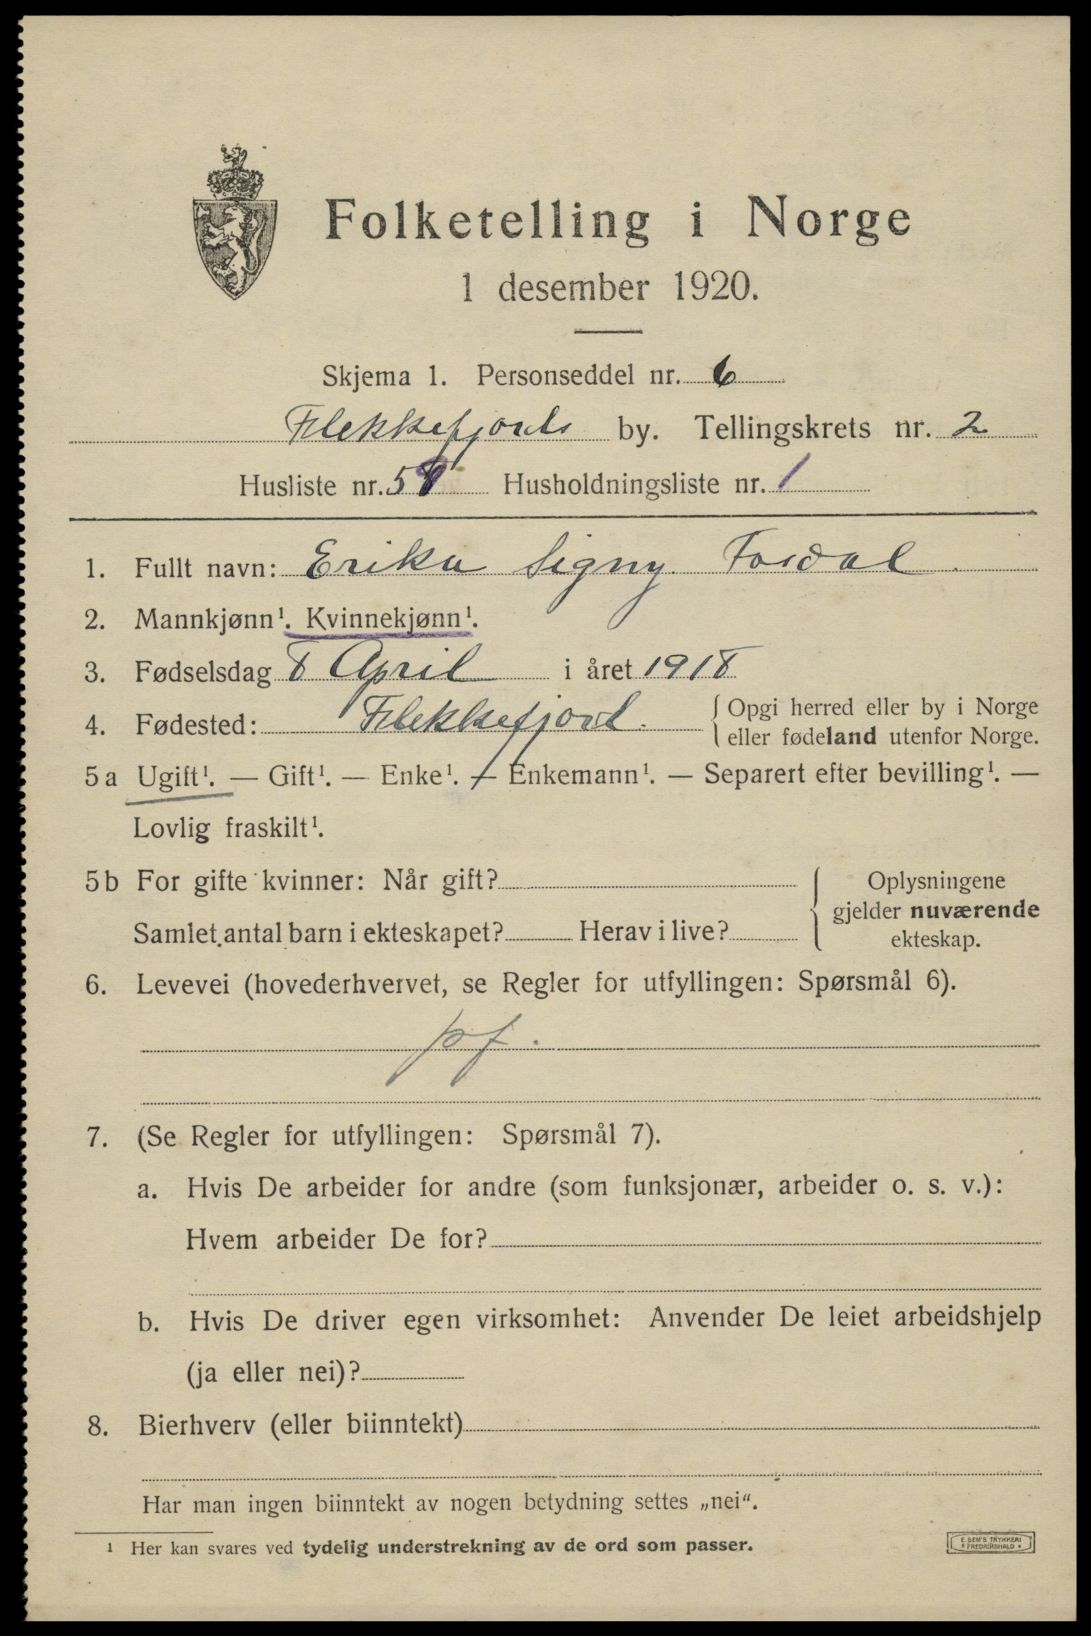 Folketelling i Norge
1 desember 1920.
Skjema 1. Personseddel nr. 6
Flekkefjords by. Tellingskrets nr. 2
Husliste nr. 58 Husholdningsliste nr. 1
1. Fullt navn: Erika Signy Fosdal.
2. Mannkjønn¹. Kvinnekjønn¹.
3. Fødselsdag 8 April i året 1918
4. Fødested: Flekkefjord. { Opgi herred eller by i Norge
eller fødeland utenfor Norge.
5a Ugift¹. — Gift¹. — Enke¹. — Enkemann¹. — Separert efter bevilling¹. —
Lovlig fraskilt¹.
5b For gifte kvinner: Når gift? { Oplysningene
gjelder nuværende
Samlet antal barn i ekteskapet? Herav i live?
ekteskap.
6. Levevei (hovederhvervet, se Regler for utfyllingen: Spørsmål 6).
pf.
7. (Se Regler for utfyllingen: Spørsmål 7).
a. Hvis De arbeider for andre (som funksjonær, arbeider o. s. v.):
Hvem arbeider De for?
b. Hvis De driver egen virksomhet: Anvender De leiet arbeidshjelp
(ja eller nei)?
8. Bierhverv (eller biinntekt)
Har man ingen biinntekt av nogen betydning settes „nei“.
¹ Her kan svares ved tydelig understrekning av de ord som passer.
E. SEM'S TRYKKERI
FREDRIKSHALD